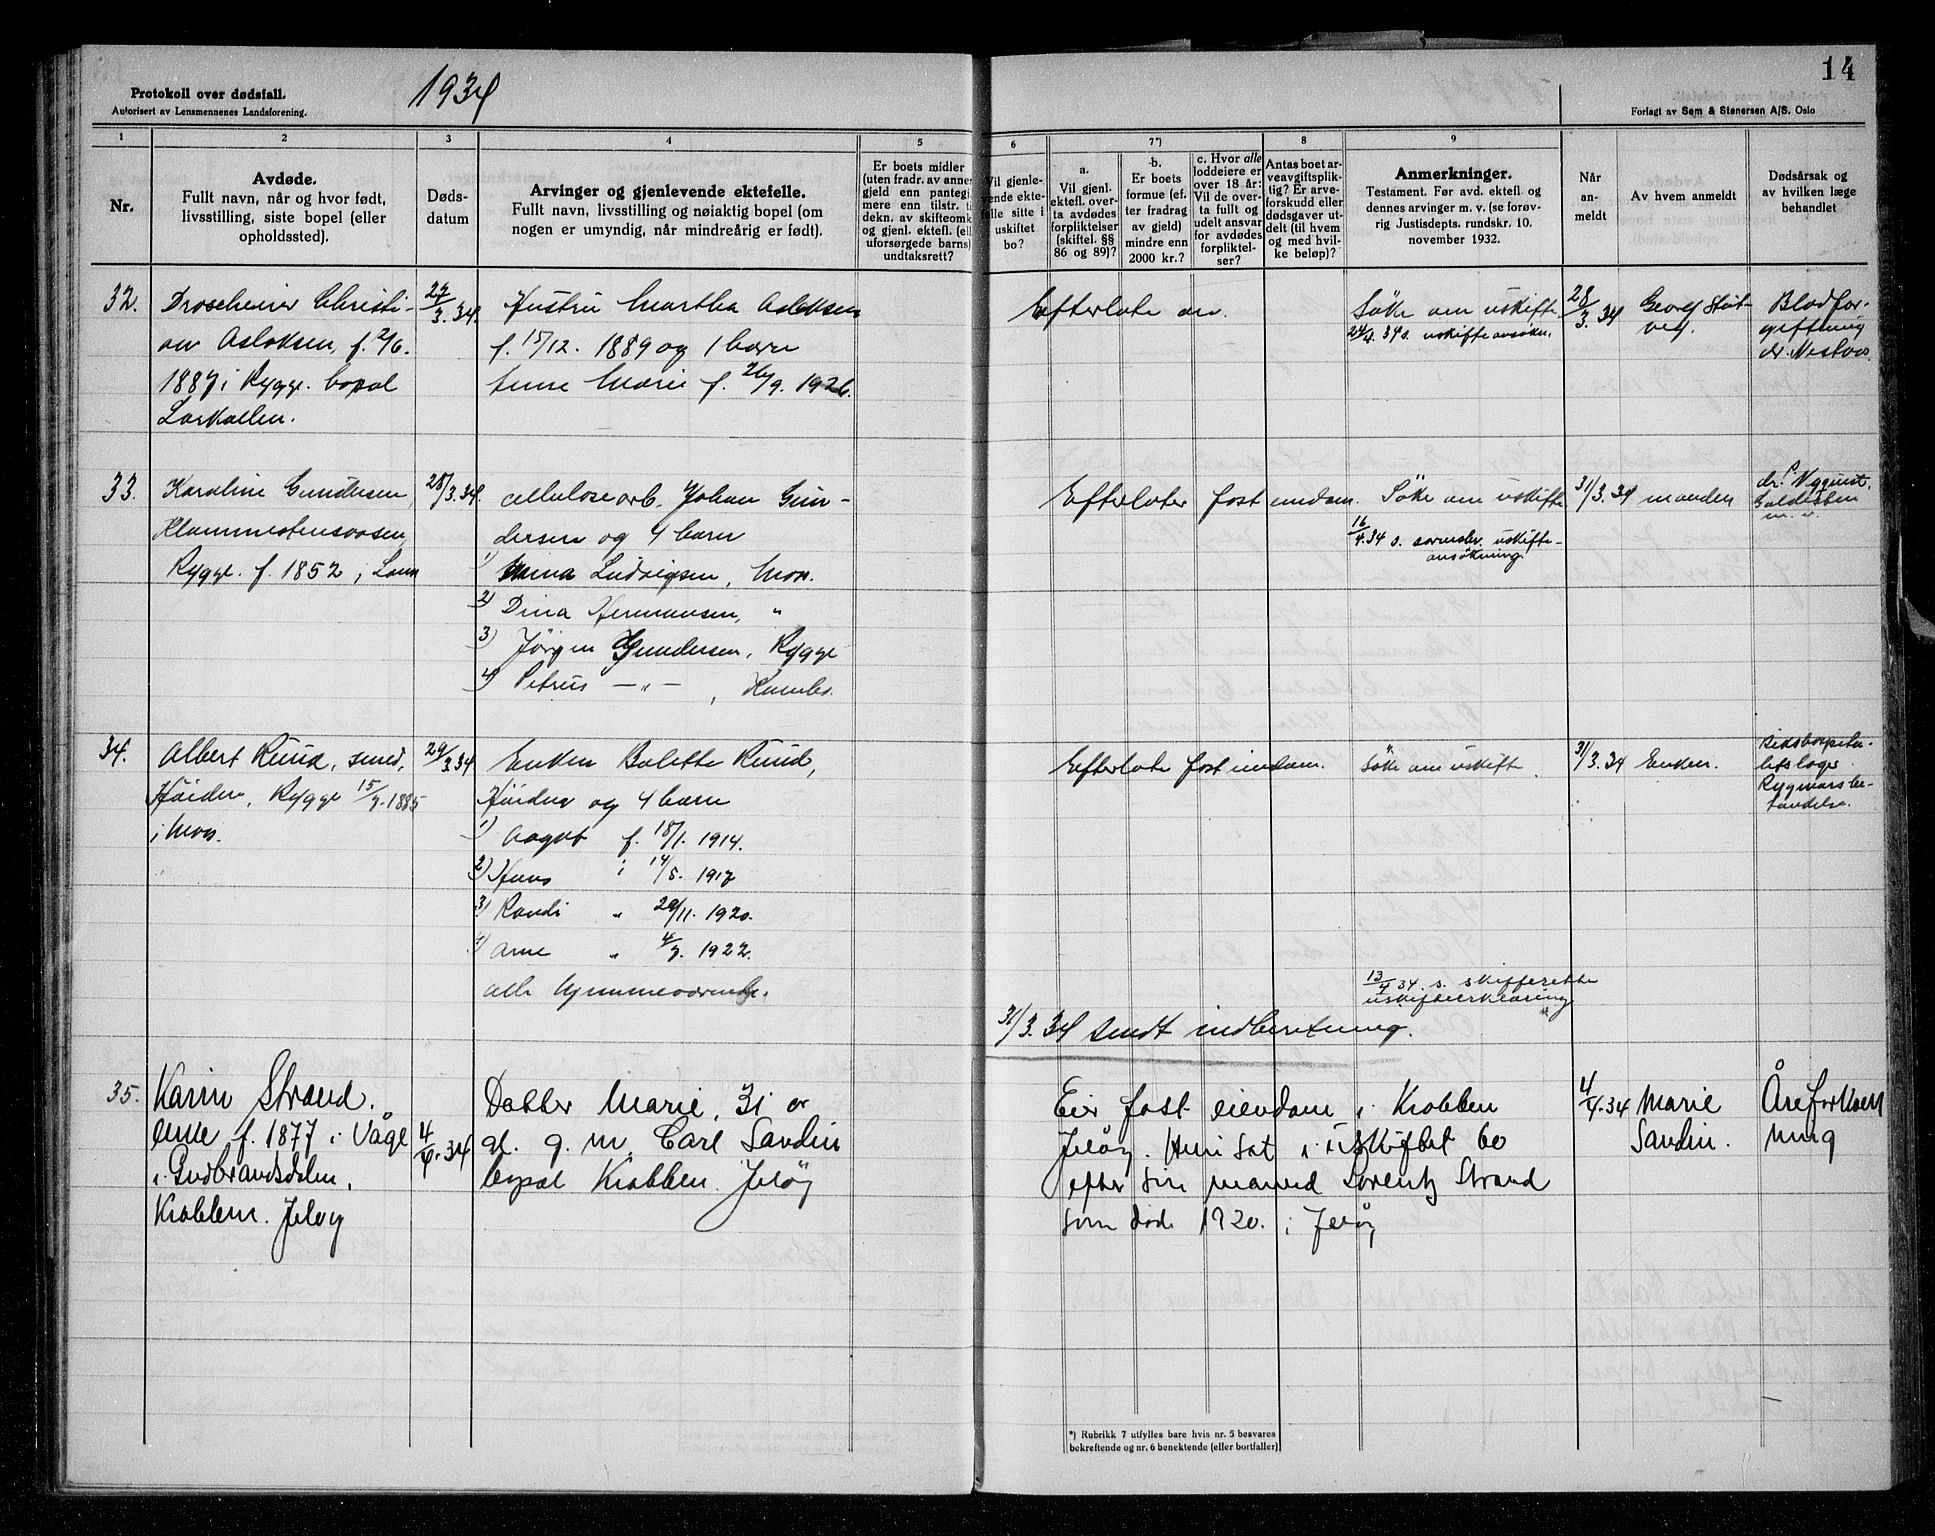 Protokoll over dødsfall.
Autorisert av Lensmennenes Landsforening.
1934
14
Forlagt av Sem & Stenersen A/S. Oslo
1
2
3
4
5
6
7*)
8
9
Nr.
Avdøde.
Fullt navn, når og hvor født,
livsstilling, siste bopel (eller
opholdssted).
Døds-
datum
Arvinger og gjenlevende ektefelle.
Fullt navn, livsstilling og nøiaktig bopel (om
nogen er umyndig, når mindreårig er født).
Er boets midler
(uten fradr. av annen
gjeld enn pantegj
mere enn tilstr. t
dekn. av skifteomk
og gjenl. ektefl. (ell
uforsørgede barns)
undtaksrett?
Vil gjenle-
vende ekte-
felle sitte i
uskiftet
bo?
a.
Vil gjenl.
ektefl. over-
ta avdødes
forpliktelser
(skiftel. §§
86 og 89)?
b.
Er boets
formue (ef-
ter fradrag
av gjeld)
mindre enn
2000 kr.?
c. Hvor alle
loddeiere er
over 18 år:
Vil de over-
ta fullt og
udelt ansvar
for avdødes
forpliktel-
ser?
Antas boet ar-
veavgiftsplik-
tig? Er arve-
forskudd eller
dødsgaver ut-
delt (til hvem
og med hvil-
ke beløp)?
Anmerkninger.
Testament. Før avd. ektefl. og
dennes arvinger m. v. (se forøv-
rig Justisdepts. rundskr. 10.
november 1932.
Når
an-
meldt
Av hvem anmeldt
Dødsårsak og
av hvilken læge
behandlet
32.
Droscheeier Christi-
an Aslaksen, f. 2/6.
1887 i Rygge. bopal
Larkollen.
27/3.34.
Hustru Martha Aslaksen
f. 15/12. 1889 og 1 barn
Anne Marie f. 26/9. 1926.
Efterlate
Søke om uskifte
24/4. 34 s. uskifteansøkn.
28/3. 34
Georg
Blodfor-
giftning
dr.
33.
Karoline Gundersen,
Rygge. f. 1852,
28/3.34.
Celluloseorb. Johan Gun-
dersen og 4 barn
1) Mina Ludvigsen, Moss.
2) Dina Hermansen, "
3) Jørgen Gundersen, Rygge
4) Petrus —"—, Kambo.
Efterlater fast eiendom.
Søke om uskifte
16/4.34 s. uskifte-
ansøkning.
31/3.34
manden
dr. Nyquist.
m. v.
34.
Albert Ruud, smed,
Høiden, Rygge 15/7.1885
i Moss.
29/3.34
Enken Bolette Ruud,
Høiden og 4 barn
1) Aagot f. 18/1. 1914.
2) Hans i 14/5. 1917
3) Randi " 29/11. 1920.
4) Arne " 4/7. 1922.
alle hjemmeværende.
Efterlate fast eiendom.
Søke om uskifte
13/4 34. s. skifteretten
uskifteerklæring
31/3.34
Enken.
Rygmarsbe-
tendelse.
31/3.34 sendt indberetning.
35.
Karin Strand.
enke f. 1877 i Vågå
i Gudbrandsdalen,
Krobben. Jeløy
4/4.34
Datter Marie, 31 år
gl. g. m. Carl Sandin
bopæl Krobben. Jeløy
Eier fast eiendom i Krobben
Jeløy. Hun sat i uskiftet bo
efter sin mand Lorentz Strand
som døde 1920. i Jeløy
4/4.34
Marie
Sandin.
Åreforkalk
ning
*) Rubrikk 7 utfylles bare hvis nr. 5 besvares
bekreftende og nr. 6 benektende (eller bortfaller)